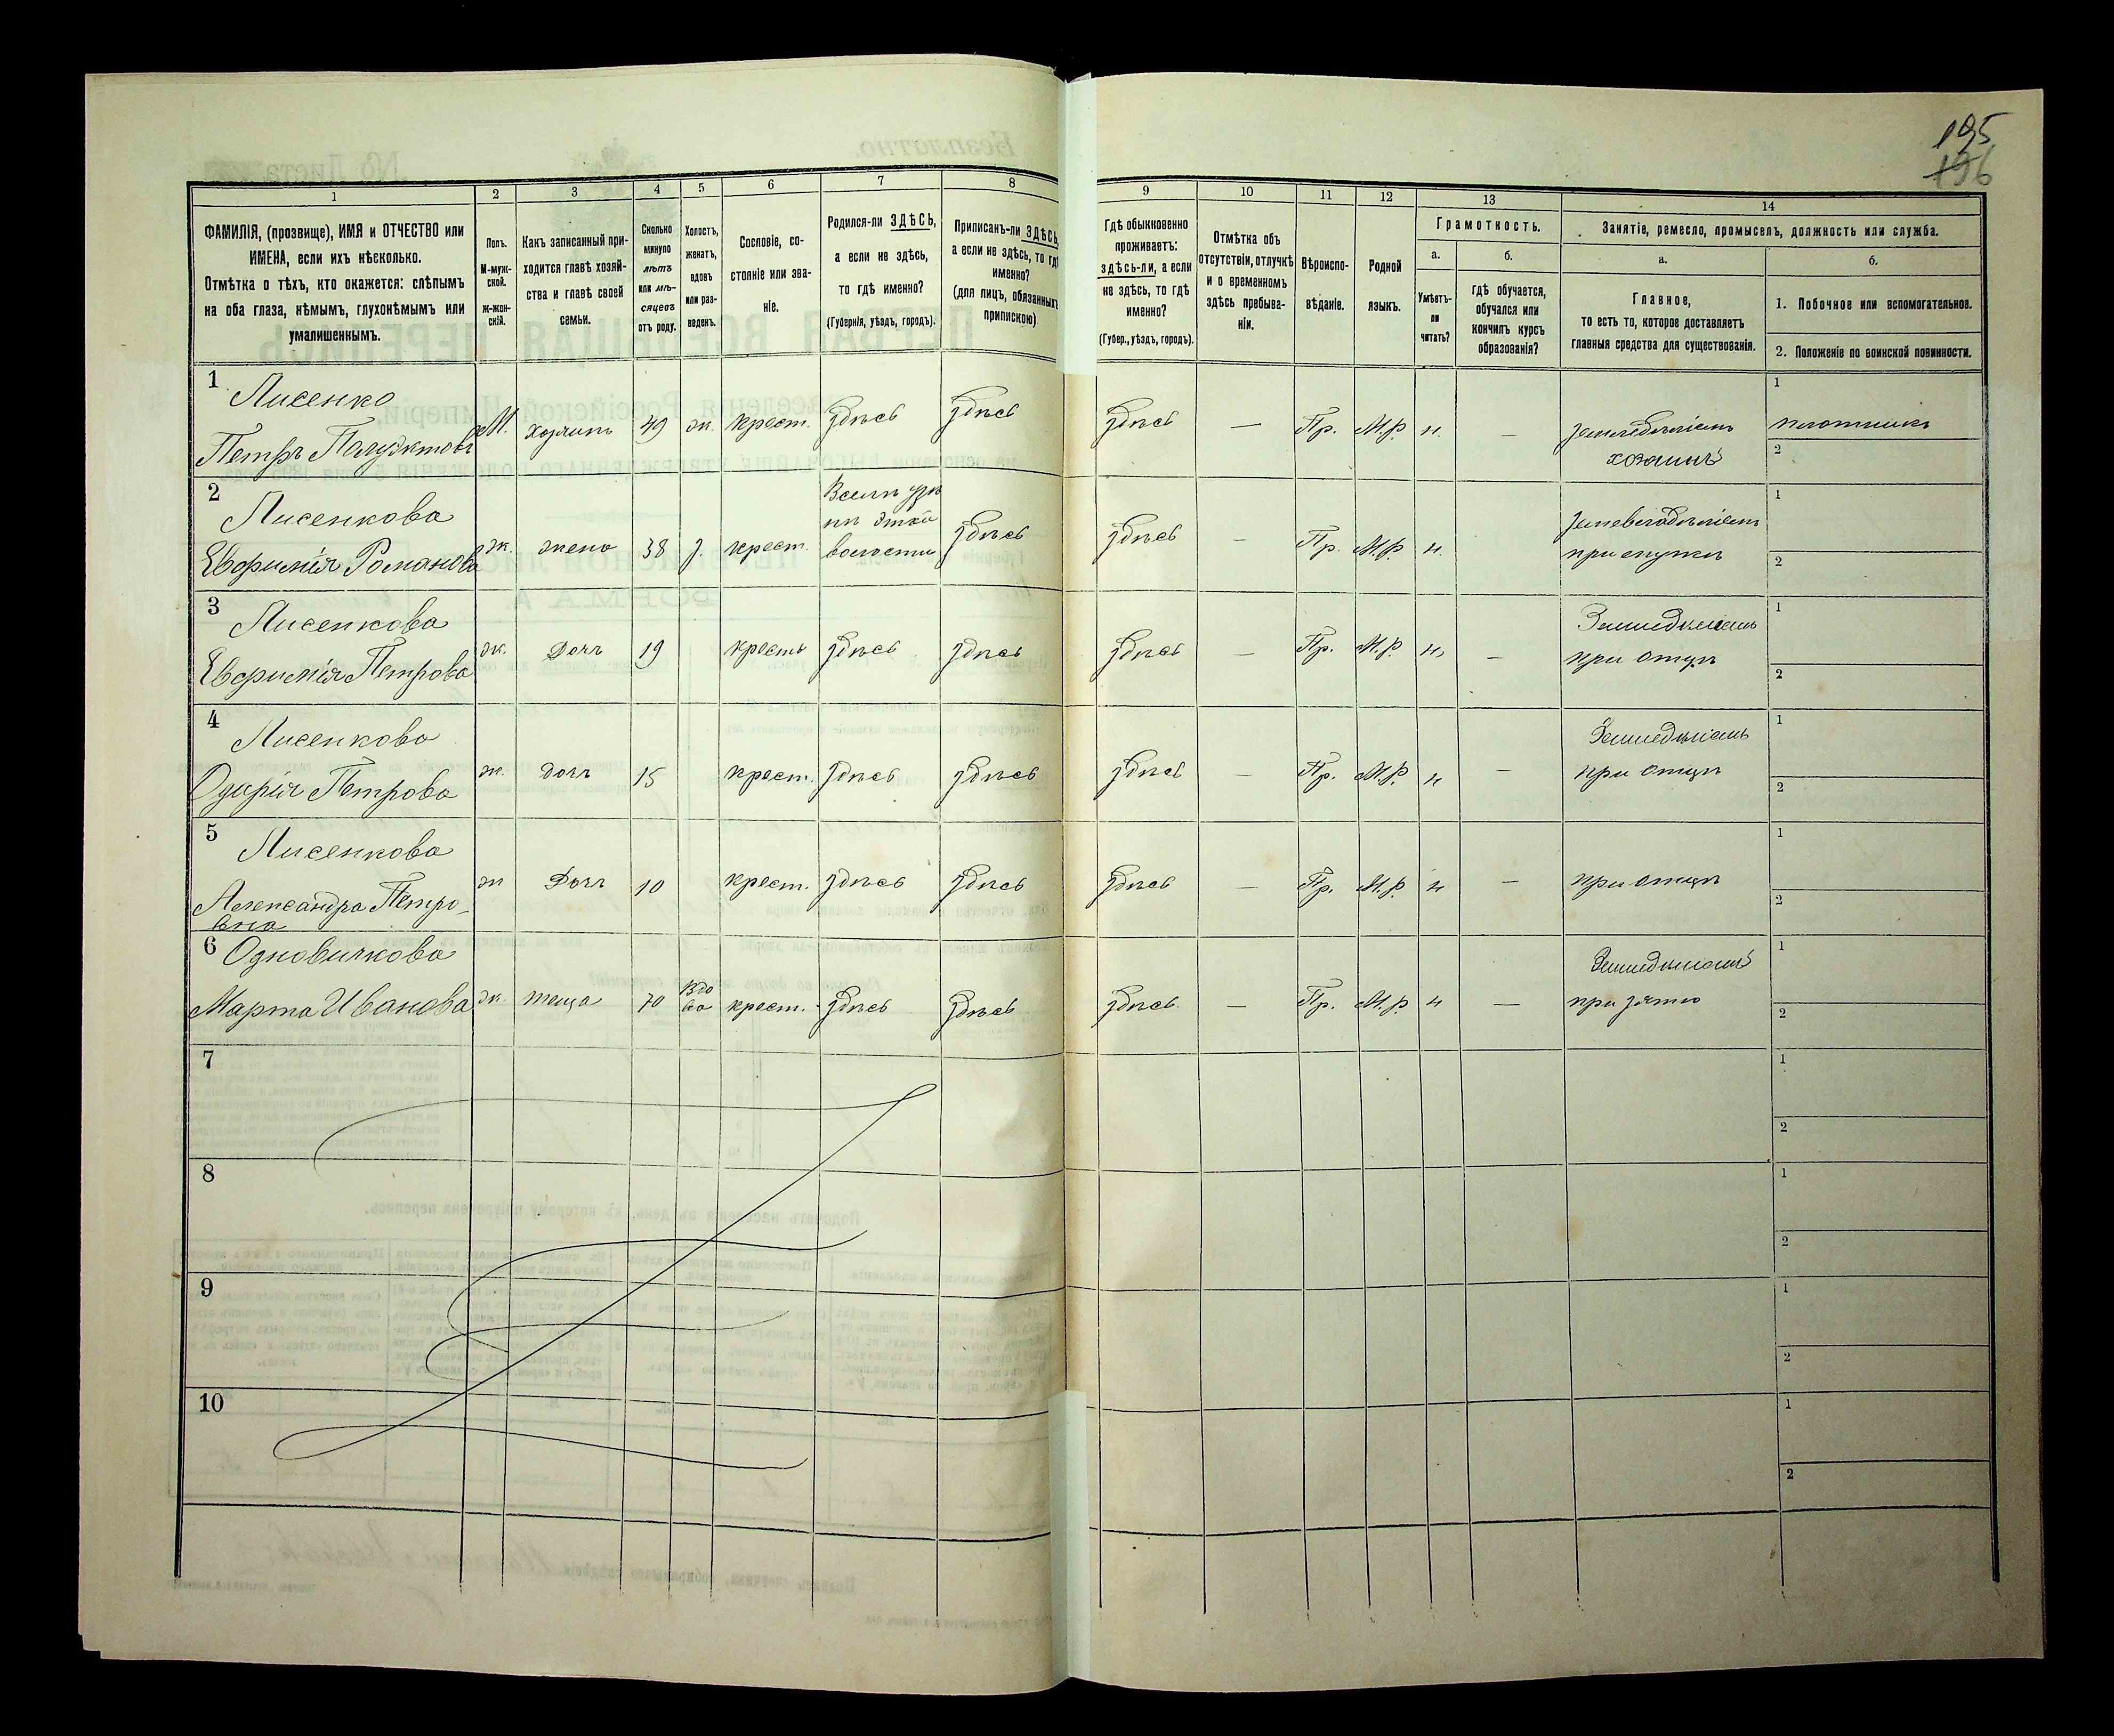 195
196
1
2
3
4
5
6
7
8
9
10
11
12
13
14
ФАМИЛІЯ, (прозвище), ИМЯ и ОТЧЕСТВО или
ИМЕНА, если ихъ нѣсколько.
Отмѣтка о тѣхъ, кто окажется: слѣпымъ
на оба глаза, нѣмымъ, глухонѣмымъ или
умалишеннымъ.
Полъ.
М-муж-
ской.
ж-жен-
скій.
Какъ записанный при-
ходится главѣ хозяй-
ства и главѣ своей
семьи.
Сколько
минуло
лѣтъ
или мѣ-
сяцевъ
отъ роду.
Холостъ,
женатъ,
вдовъ
или раз-
веденъ.
Сословіе, со-
стояніе или зва-
ніе.
Родился-ли ЗДѢСЬ,
а если не здѣсь,
то гдѣ именно?
(Губернія, уѣздъ, городъ).
Приписанъ-ли ЗДѢСЬ,
а если не здѣсь, то гдѣ
именно?
(для лицъ, обязанныхъ
припискою)
Гдѣ обыкновенно
проживаетъ:
здѣсь-ли, а если
не здѣсь, то гдѣ
именно?
(Губер., уѣздъ, городъ).
Отмѣтка объ
отсутствіи, отлучкѣ
и о временномъ
здѣсь пребыва-
ніи.
Вѣроиспо-
вѣданіе.
Родной
языкъ.
Грамотность.
а.
Умѣетъ-
ли
читать?
б.
гдѣ обучается,
обучался или
кончилъ курсъ
образованія?
Занятіе, ремесло, промыселъ, должность или служба.
а.
Главное,
то есть то, которое доставляетъ
главныя средства для существованія.
б.
1. Побочное или вспомогательное.
2. Положеніе по воинской повинности.
1
Лисенко
Петръ Полуэктовъ
М. хозяинъ 49 ж. крест. здѣсь здѣсь здѣсь — Пр. М.Р. н. —
земледѣліемъ
хозяинъ
1
плотникъ
2
2
Лисенкова
Евфимія Романова
ж. жена 38 з. крест.
волости
здѣсь здѣсь — Пр. М.Р. н.
при мужѣ
1
2
3
Лисенкова
Евфимія Петрова
ж. Дочь 19 крестъ здѣсь здѣсь здѣсь — Пр. М.Р. н —
Земледѣліемъ
при отцѣ
1
2
4
Лисенкова
Одарія Петрова
ж. дочь 15 крест. здѣсь здѣсь здѣсь — Пр. М.Р. н —
Земледѣліемъ
при отцѣ
1
2
5
Лисенкова
Александра Петро-
вна
ж Дочь 10 крест. здѣсь здѣсь здѣсь — Пр. М.Р. н —
при отцѣ
1
2
6
Марта Иванова
ж. теща 70 Вдо
ва
крест. здѣсь здѣсь здѣсь — Пр. М.Р. н —
Земледѣліемъ
при зятю
1
2
7
1
2
8
1
2
9
1
2
10
1
2